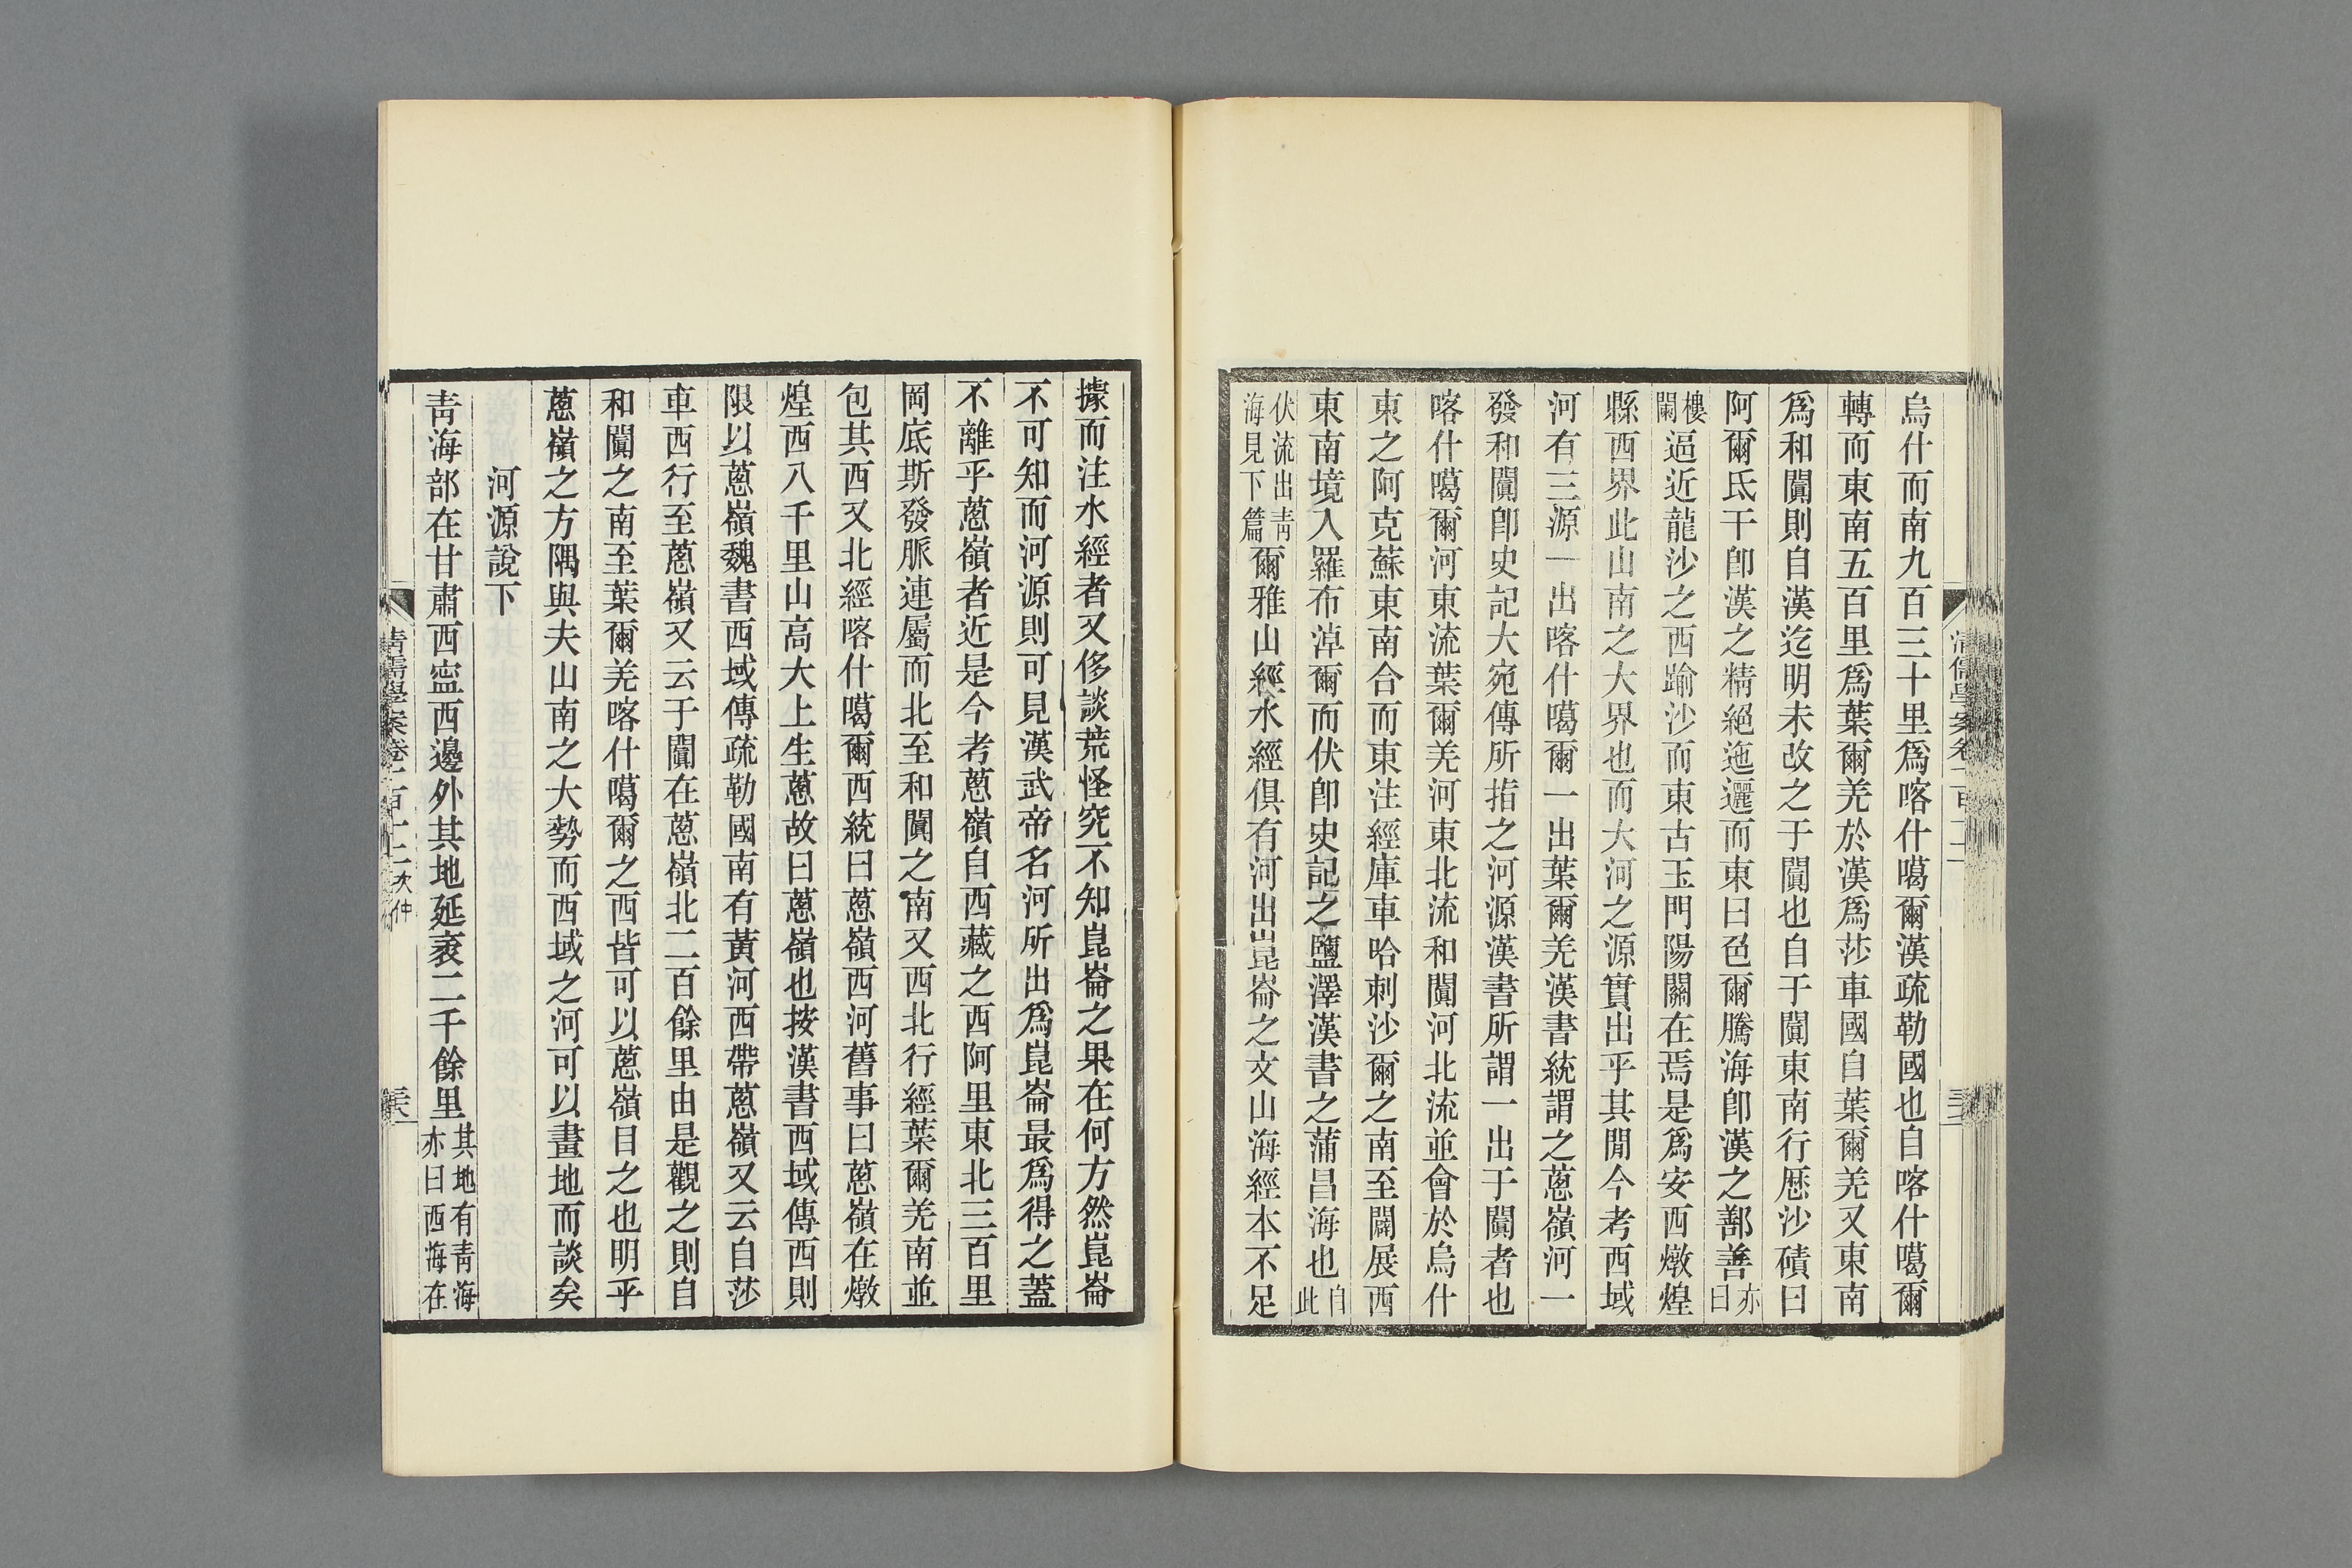 烏什而南九百三十里爲喀什噶爾漢疏勒國也自喀什噶爾
轉而東南五百里爲葉爾羌於漢爲莎車國自葉爾羌又東南
爲和闐則自漢迄明未改之于闐也自于闐東南行歷沙磧曰
阿爾氐干卽漢之精絕迤邐而東曰色爾騰海卽漢之鄯善亦曰
樓闌逼近龍沙之西踰沙而東古玉門陽關在焉是爲安西燉煌
縣西界此山南之大界也而大河之源實出乎其閒今考西域
河有三源一出喀什噶爾一出葉爾羌漢書統謂之蔥嶺河一
發和闐卽史記大宛傳所指之河源漢書所謂一出于闐者也
喀什噶爾河東流葉爾羌河東北流和闐河北流並會於烏什
東之阿克蘇東南合而東注經庫車哈剌沙爾之南至闢展西
東南境入羅布淖爾而伏卽史記之鹽澤漢書之蒲昌海也自此
伏流出青海見下篇爾雅山經水經俱有河出崑崙之文山海經本不足
據而注水經者又侈談荒怪究不知崑崙之果在何方然崑崙
不可知而河源則可見漢武帝名河所出爲崑崙最爲得之蓋
不離乎蔥嶺者近是今考蔥嶺自西藏之西阿里東北三百里
岡底斯發脈連屬而北至和闐之南又西北行經葉爾羌南並
包其西又北經喀什噶爾西統曰蔥嶺西河舊事曰蔥嶺在燉
煌西八千里山高大上生蔥故曰蔥嶺也按漢書西域傳西則
限以蔥嶺魏書西域傳疏勒國南有黃河西帶蔥嶺又云自莎
車西行至蔥嶺又云于闐在蔥嶺北二百餘里由是觀之則自
和闐之南至葉爾羌喀什噶爾之西皆可以蔥嶺目之也明乎
蔥嶺之方隅與夫山南之大勢而西域之河可以畫地而談矣
河源說下
青海部在甘肅西寍西邊外其地延袤二千餘里其地有青海亦曰西海在